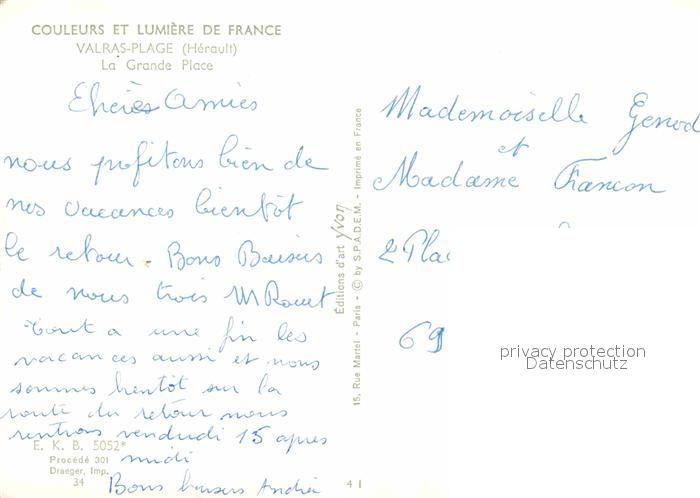 COULEURS ET LUMIÈRE DE FRANCE
VALRAS-PLAGE (Hérault)
La Grande Place
Chères Amies
nous profitons bien de
nos vacances bientôt
le retour. Bons Baisers
de nous trois M
Tout a une fin les
vacances aussi et nous
sommes bientôt sur la
route du retour nous
rentrons vendredi 15 apres
midi
Bons baisers Andrée
E. K. B. 5052*
Procédé 301
Draeger, Imp.
34
41
Éditions d'art YVON
15, Rue Martel - Paris - © by S.P.A.D.E.M. - Imprimé en France
Mademoiselle
et
Madame Francon
2 Pla
69
privacy protection
Datenschutz